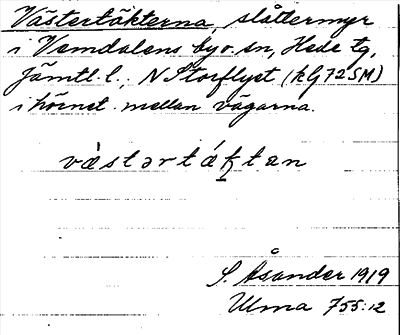 Västertäkterna, slåttermyr
i Vemdalens by o. sn, Hede tg,
Jämtl. l., N Storflyet (kG 72 SM)
i hörnet mellan vägarna.
västərtäftan
S. Åsander 1919
Ulma 755:12